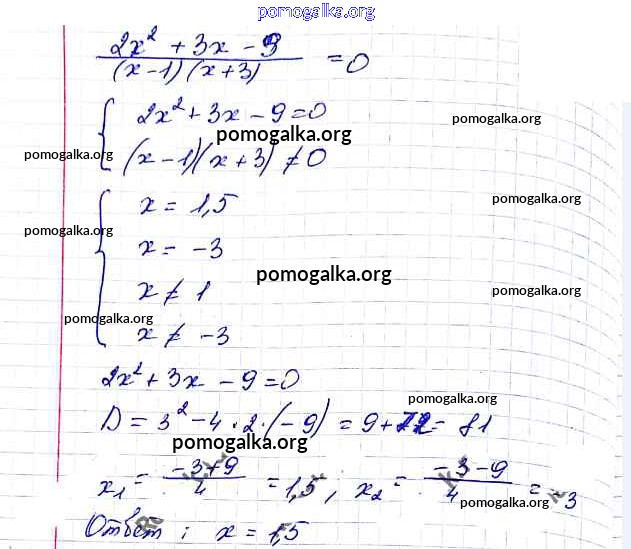 pomogalka.org
2x² + 3x - 9
(x-1)(x+3) = 0
2x² + 3x - 9 = 0
pomogalka.org
pomogalka.org
(x-1)(x+3) ≠ 0
pomogalka.org
x = 1,5
pomogalka.org
pomogalka.org
x = -3
pomogalka.org
x ≠ 1
pomogalka.org
pomogalka.org
x ≠ -3
2x² + 3x - 9 = 0
pomogalka.org
D = 3² - 4 · 2 · (-9) = 9 + 72 = 81
pomogalka.org
x₁ = (-3+9)/4 = 1,5 ; x₂ = (-3-9)/4 = -3
pomogalka.org
Ответ : x = 1,5